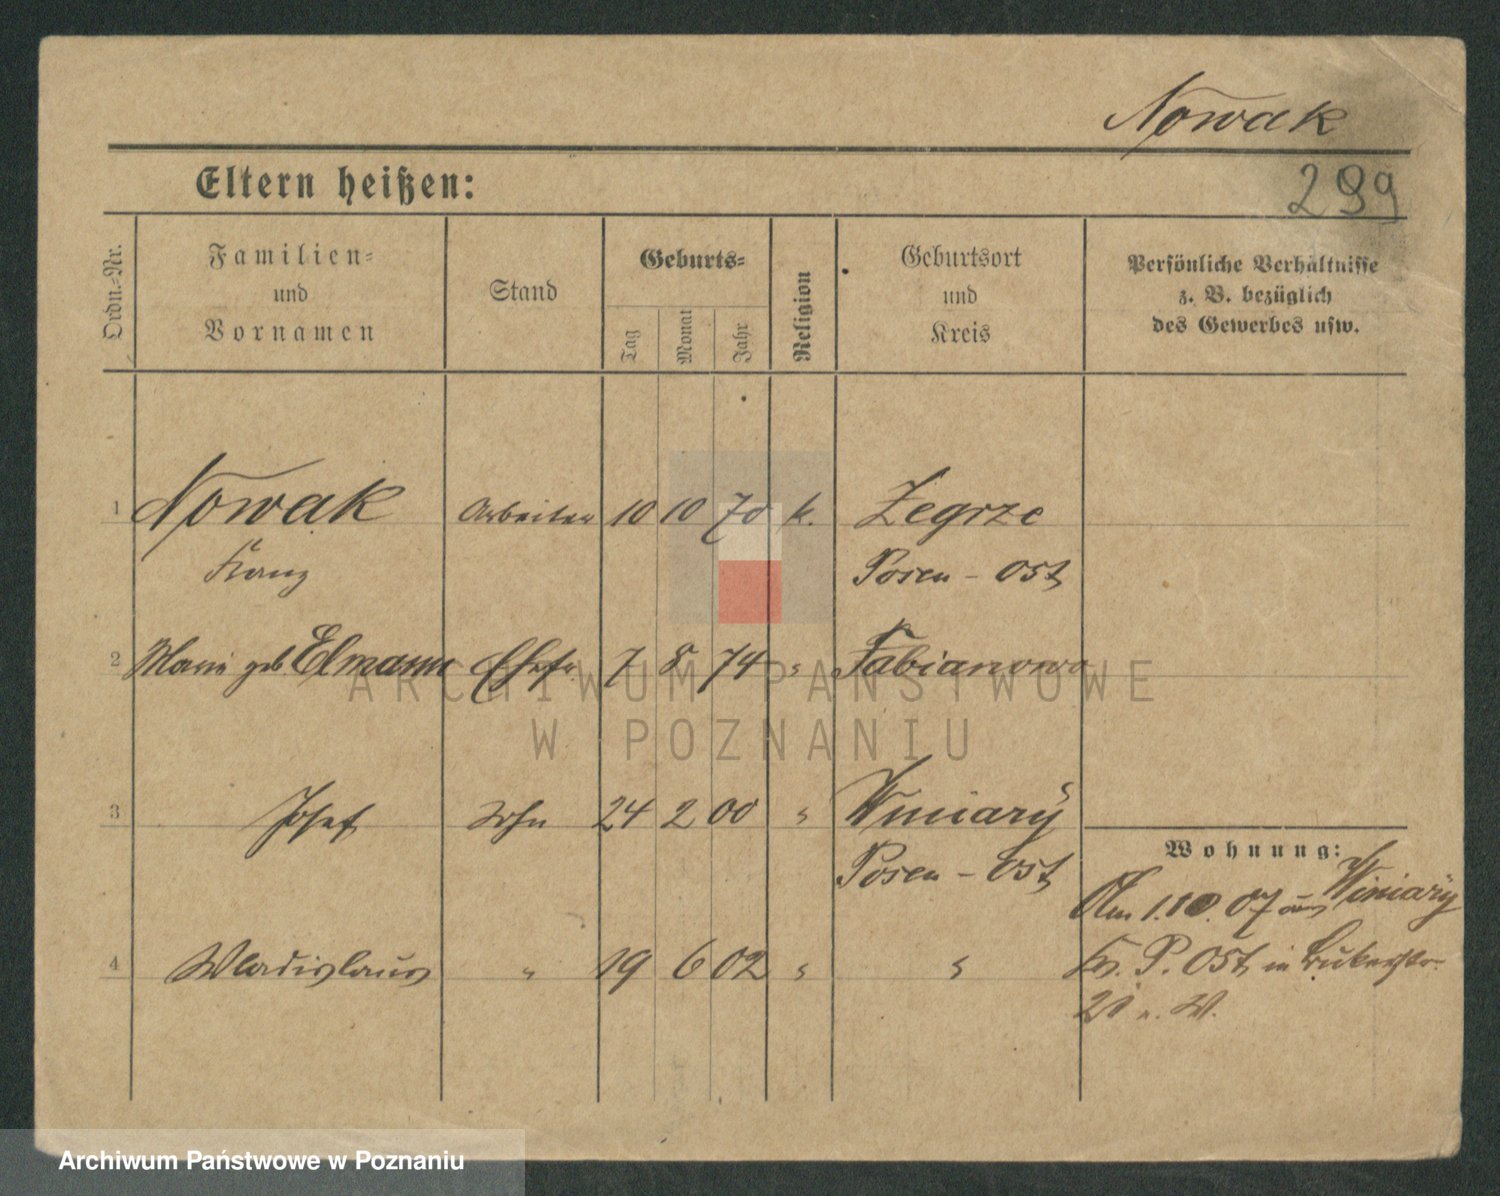 Nowak
Eltern heißen:
299
Ordn.-Nr.
Familien-
und
Vornamen
Stand
Geburts-
Tag
Monat
Jahr
Religion
Geburtsort
und
Kreis
Persönliche Verhältnisse
z. B. bezüglich
des Gewerbes usw.
1 Nowak Arbeiter 10 10 70 k. Zegrze
Franz Posen - Ost
2 Marie geb. Elmann Ehefr. 7 8 74 " Fabianowo
3 Josef Sohn 24 2 00 " Winiary
Posen - Ost
4 Wladislaus " 19 6 02 " "
Wohnung:
Am 1.10.07 aus Winiary
Kr. P. Ost in
ARCHIWUM PAŃSTWOWE
W POZNANIU
Archiwum Państwowe w Poznaniu